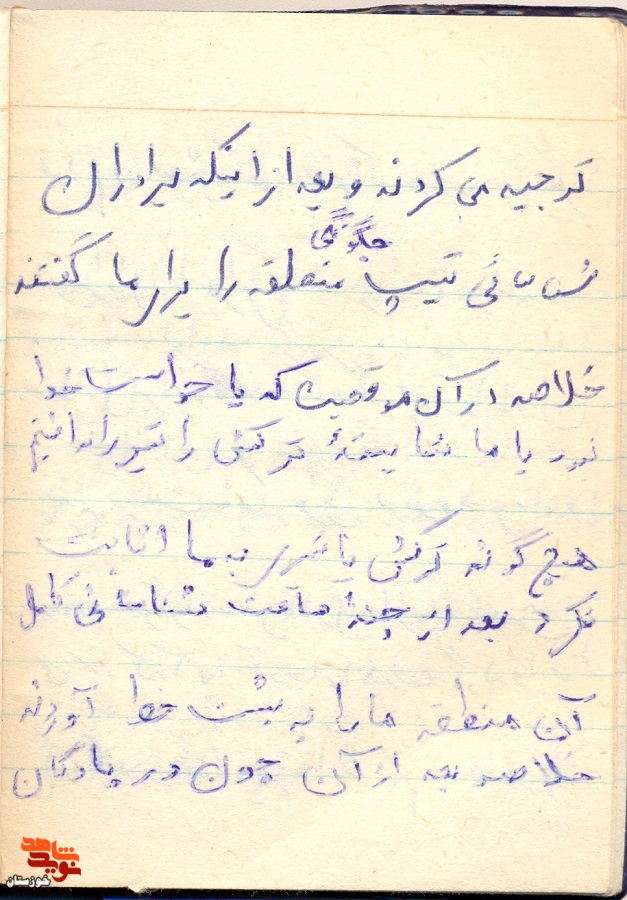 توجیه می کردند و بعد از اینکه برادران
چگونگی
شناسائی تیپ منطقه را برای ما گفتند
خلاصه در آن موقعیت که یا خواست خدا
نبود یا ما شایستۀ ترکش را تیر را نداشتیم
هیچ گونه ترکش یا تیری به ما اثابت
نکرد بعد از چند ساعت شناسائی کامل
آن منطقه ما را به پشت خط آوردند
خلاصه بعد از آن چون در پادگان
نوید شاهد
خوزستان